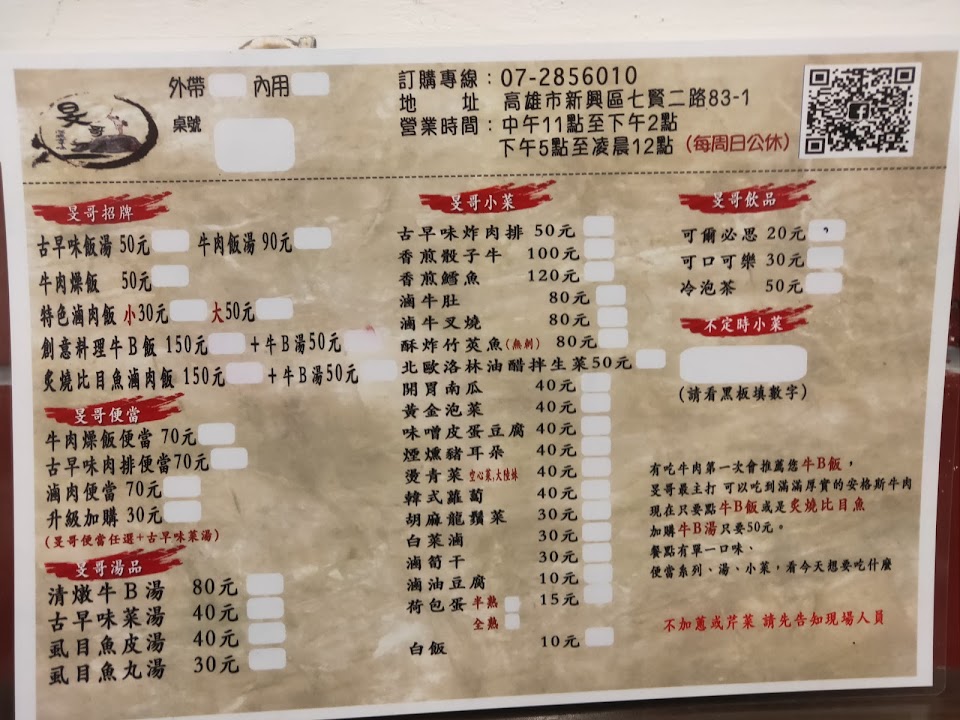 旻哥
外帶 內用
桌號
訂購專線：07-2856010
地 址 高雄市新興區七賢二路83-1
營業時間：中午11點至下午2點
下午5點至凌晨12點 (每周日公休)
旻哥招牌
古早味飯湯 50元 牛肉飯湯 90元
牛肉燥飯 50元
特色滷肉飯 小30元 大50元
創意料理牛B飯 150元 +牛B湯50元
炙燒比目魚滷肉飯 150元 +牛B湯50元
旻哥便當
牛肉燥飯便當 70元
古早味肉排便當70元
滷肉便當 70元
升級加購 30元
(旻哥便當任選+古早味菜湯)
旻哥湯品
清燉牛B湯 80元
古早味菜湯 40元
虱目魚皮湯 40元
虱目魚丸湯 30元
旻哥小菜
古早味炸肉排 50元
香煎骰子牛 100元
香煎鱈魚 120元
滷牛肚 80元
滷牛叉燒 80元
酥炸竹筴魚(無刺) 80元
北歐洛林油醋拌生菜50元
開胃南瓜 40元
黃金泡菜 40元
味噌皮蛋豆腐 40元
煙燻豬耳朵 40元
燙青菜 空心菜,大陸妹 40元
韓式蘿蔔 40元
胡麻龍鬚菜 30元
白菜滷 30元
滷筍干 30元
滷油豆腐 10元
荷包蛋 半熟 15元
全熟
白飯 10元
旻哥飲品
可爾必思 20元
可口可樂 30元
冷泡茶 50元
不定時小菜
(請看黑板填數字)
有吃牛肉第一次會推薦您牛B飯，
旻哥最主打 可以吃到滿滿厚實的安格斯牛肉
現在只要點牛B飯或是炙燒比目魚
加購牛B湯只要50元。
餐點有單一口味、
便當系列、湯、小菜，看今天想要吃什麼
不加蔥或芹菜 請先告知現場人員